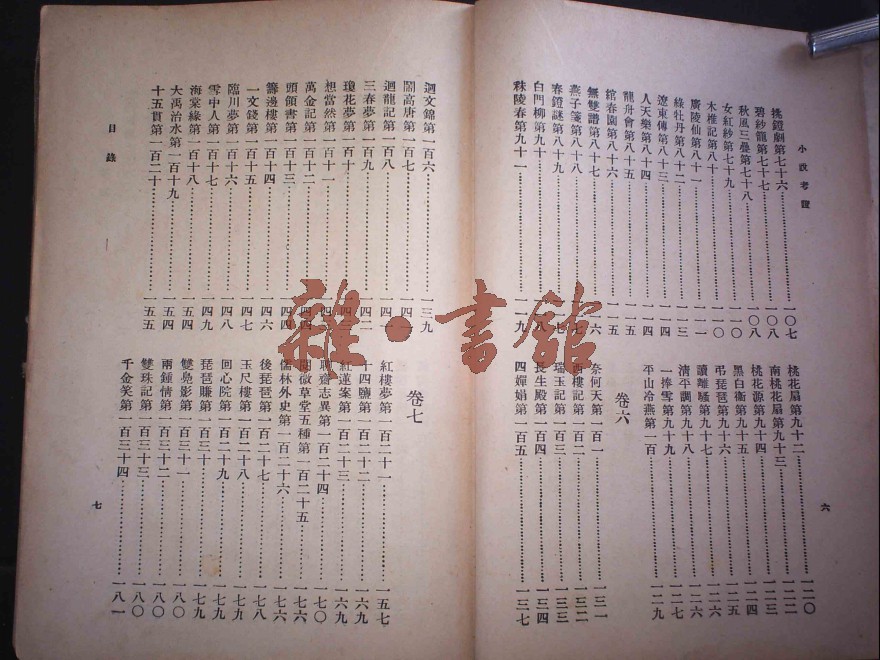 小說考證
挑鐙劇第七十六………一〇七
碧紗籠第七十七………一〇八
秋風三疊第七十八………一〇八
女紅紗第七十九………一一〇
木椎記第八十………一一〇
廣陵仙第八十一………一一一
綠牡丹第八十二………一一三
遼東傳第八十三………一一四
人天樂第八十四………一一四
龍舟會第八十五………一一五
綰春園第八十六………一一五
無雙譜第八十七………一一六
燕子箋第八十八………
春鐙謎第八十九………
白門柳第九十………一一八
秣陵春第九十一………一一九
桃花扇第九十二………一二〇
南桃花扇第九十三………一二二
桃花源第九十四………一二三
黑白衛第九十五………一二五
弔琵琶第九十六………一二六
讀離騷第九十七………一二六
清平調第九十八………
一捧雪第九十九………一二七
平山冷燕第一百………一二九
卷六
奈何天第一百一………一三一
西樓記第一百二………一三二
瑞玉記第一百三………一三三
長生殿第一百四………一三四
四嬋娟第一百五………一三七
六
迴文錦第一百六………一三九
鬧高唐第一百七………一四一
迴龍記第一百八………
三春夢第一百九………一四二
瓊花夢第一百十………
想當然第一百十一………
萬金記第一百十二………
頭領書第一百十三………
籌邊樓第一百十四………一四六
一文錢第一百十五………一四七
臨川夢第一百十六………一四八
雪中人第一百十七………一四九
海棠緣第一百十八………一五四
大禹治水第一百十九………一五四
十五貫第一百二十………一五五
卷七
紅樓夢第一百二十一………一五七
十四鹽第一百二十二………一六九
紅蓮案第一百二十三………一六九
聊齋志異第一百二十四………一七〇
閱微草堂五種第一百二十五………一七六
儒林外史第一百二十六………一七六
後琵琶第一百二十七………一七八
玉尺樓第一百二十八………一七八
回心院第一百二十九………一七九
琵琶賺第一百三十………一七九
雙鳧影第一百三十一………一八〇
兩鍾情第一百三十二………一八〇
雙珠記第一百三十三………一八〇
千金笑第一百三十四………一八一
目錄
七
雜·書館